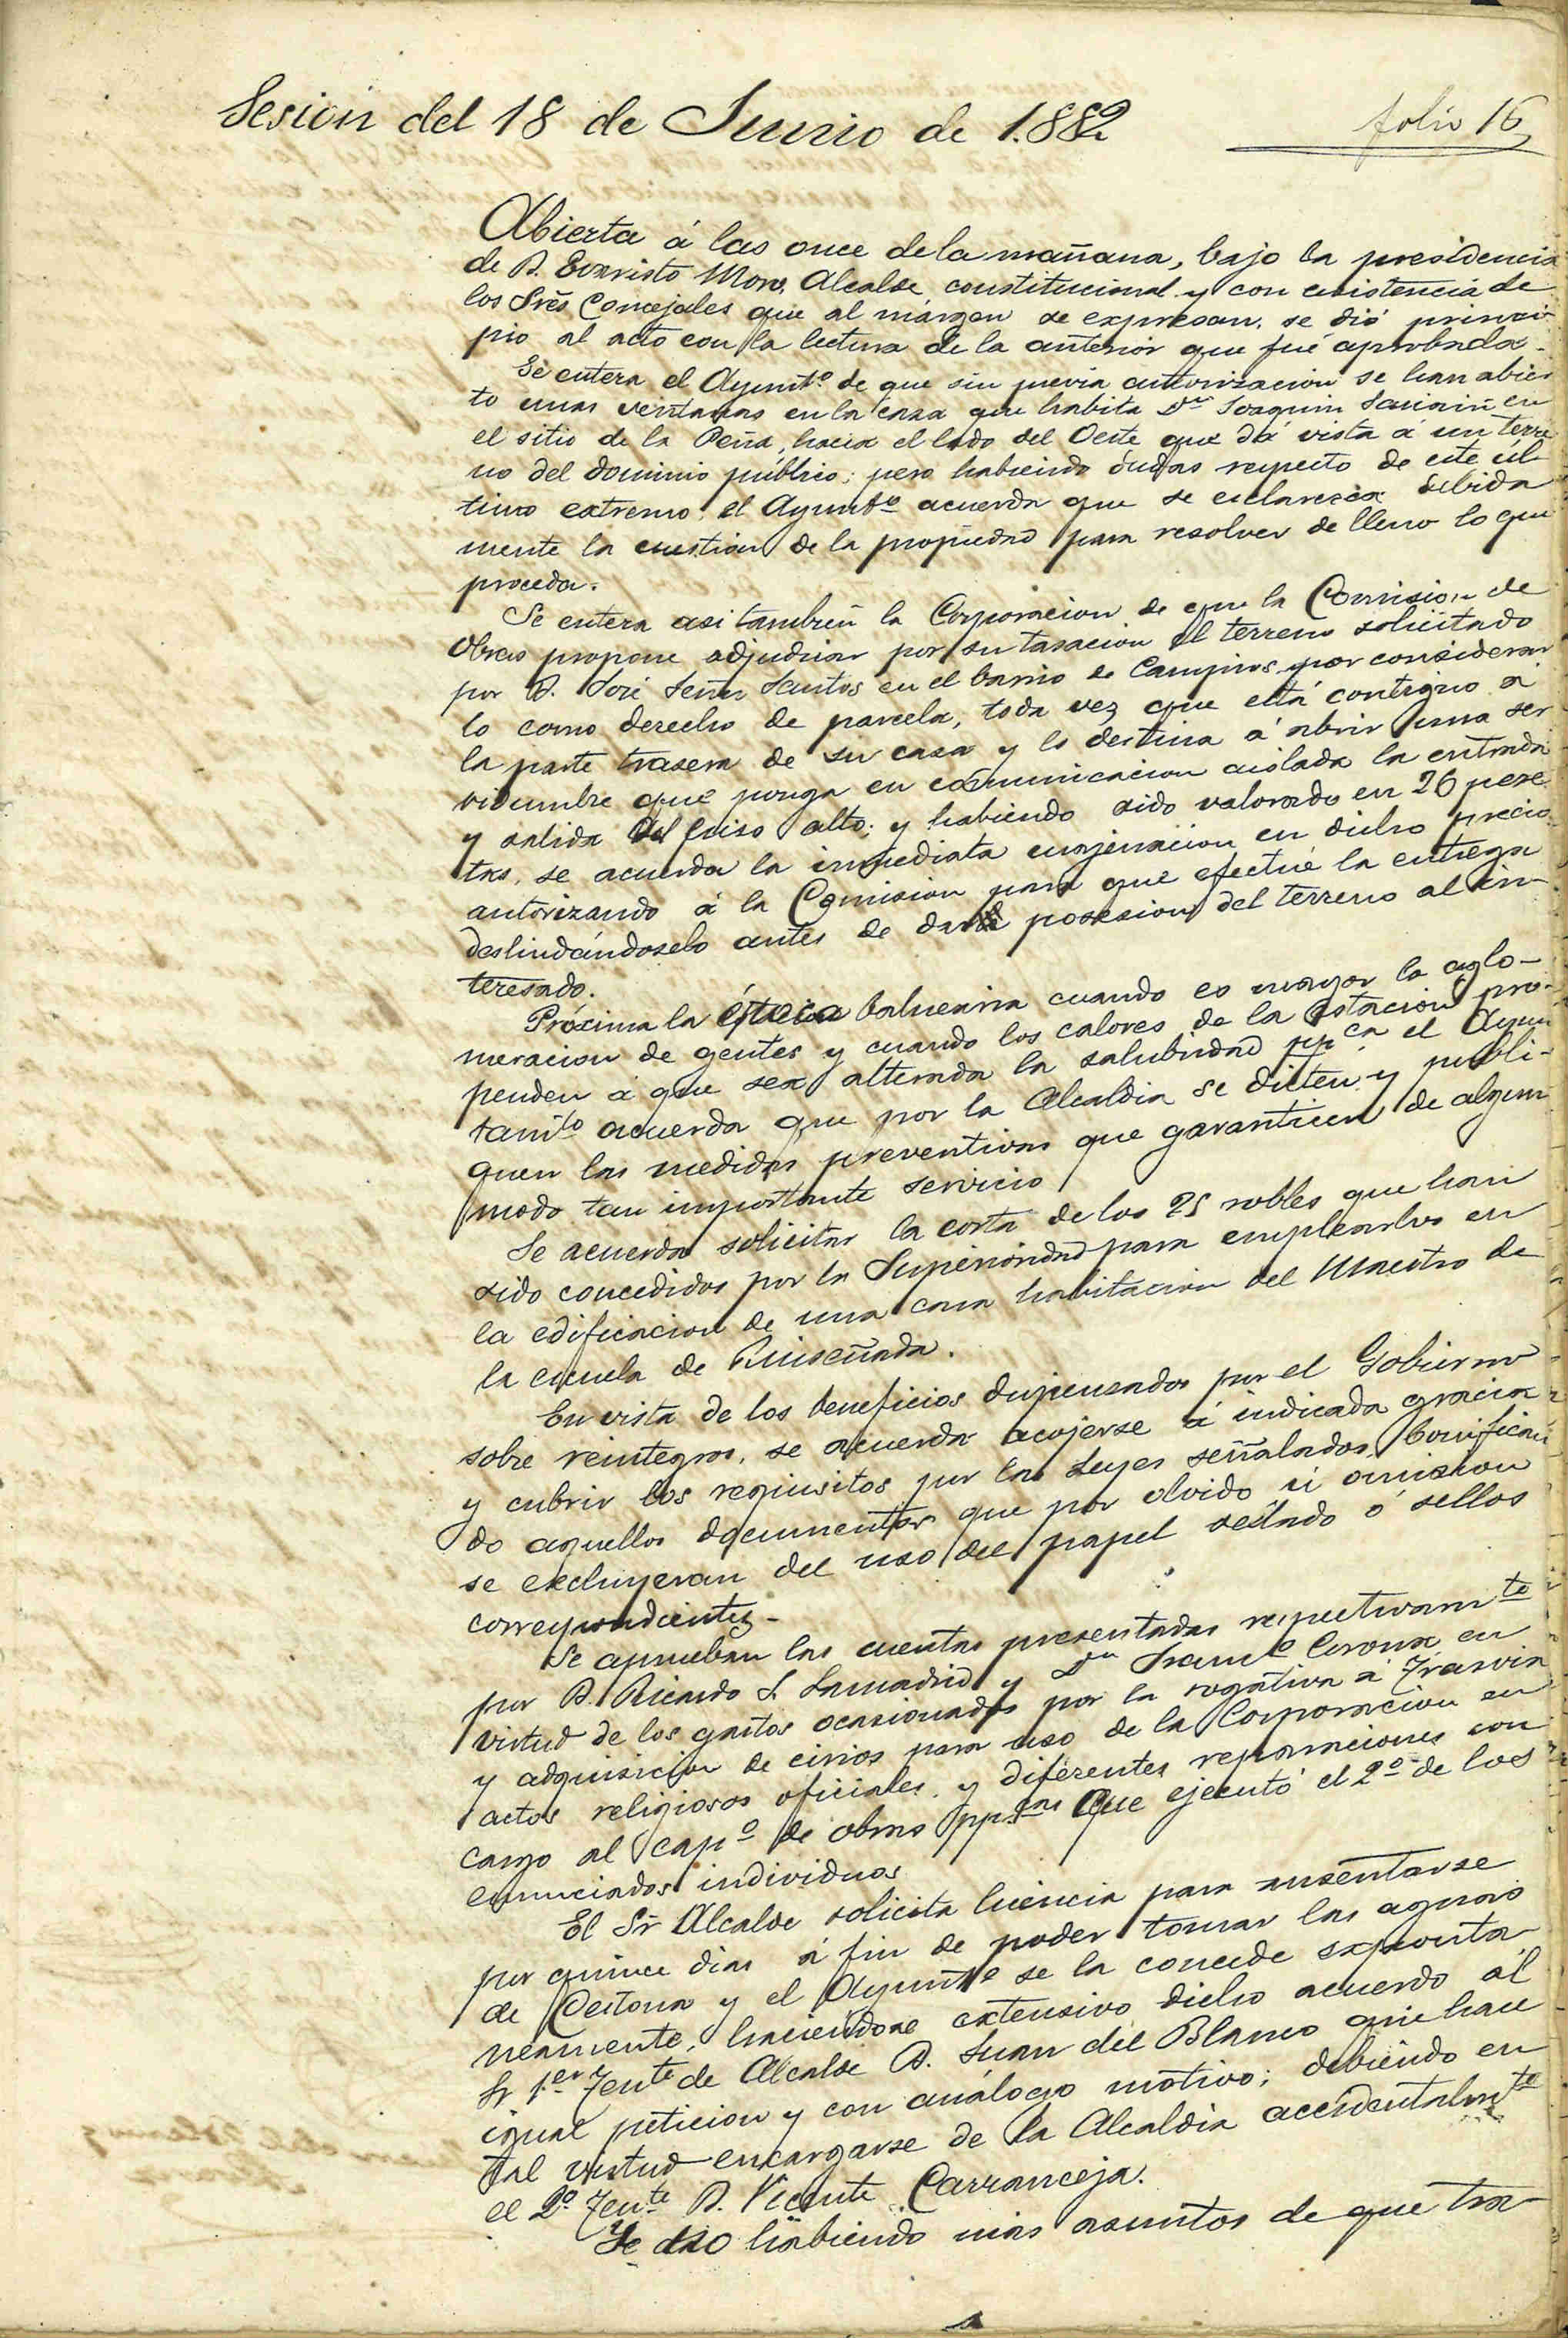 Sesion del 18 de Junio de 1.882
folio 16
Abierta á las once de la mañana, bajo la presidencia
de D. Evaristo Moro, Alcalde constitucional y con asistencia de
los Sres Concejales que al márgen se expresan, se dió princi-
pio al acto con la lectura de la anterior que fué aprobada.
Se entera el Ayuntº de que sin previa autorizacion se han abier
to unas ventanas en la casa que habita Dn Joaquin en
el sitio de la Peña, hacia el lado del Oeste que dá vista á un terre
no del dominio público; pero habiendo dudas respecto de este úl
timo extremo, el Ayuntº acuerda que se esclarezca debida
mente la cuestion de la propiedad para resolver de lleno lo que
proceda.
Se entera asi tambien la Corporacion de que la Comision de
Obras propone adjudicar por su tasacion el terreno solicitado
por D. José Señas Santos en el barrio de Campios por considerar
lo como derecho de parcela, toda vez que está contiguo á
la parte trasera de su casa y lo destina á abrir una ser
vidumbre que ponga en comunicacion aislada la entrada
y salida del piso alto; y habiendo sido valorado en 26 pese
tas, se acuerda la inmediata enajenacion en dicho precio
autorizando á la Comision para que efectúe la entrega
deslindándoselo antes de dar posesion del terreno al in-
teresado.
Próxima la época balnearia cuando es mayor la aglo-
meracion de gentes y cuando los calores de la estacion pro-
penden á que sea alterada la salubridad ppca el Ayun
tamto acuerda que por la Alcaldia se dicten y publi-
quen las medidas preventivas que garanticen de algun
modo tan importante servicio
Se acuerda solicitar la corta de los 25 robles que han
sido concedidos por la Superioridad para emplearlos en
la edificacion de una casa habitacion del Maestro de
la escuela de Ruiseñada.
En vista de los beneficios dispensados por el Gobierno
sobre reintegros, se acuerda acojerse á indicada gracia
y cubrir los requisitos por las Leyes señalados, bonifican
do aquellos documentos que por olvido ú omision
se excluyeran del uso del papel sellado ó sellos
correspondientes.-
Se aprueban las cuentas presentadas respectivamte
por D. Ricardo S. Lamadrid y Dn Francº Corona en
virtud de los gastos ocasionados por la rogativa á Trasvia
y adquisicion de cirios para uso de la Corporacion en
actos religiosos oficiales, y diferentes reparaciones con
cargo al capº de obras que ejecutó el 2º de los
enunciados individuos
El Sr Alcalde solicita licencia para ausentarse
por quince dias á fin de poder tomar las aguas
de Cestona y el Ayuntº se la concede expontá
neamente, haciéndose extensivo dicho acuerdo al
Sr 1er Tente de Alcalde D. Juan del Blanco que hace
igual peticion y con análogo motivo; debiendo en
tal virtud encargarse de la Alcaldia accidentalmte
el 2º Tente D. Vicente Carranceja.
Y no habiendo mas asuntos de que tra-